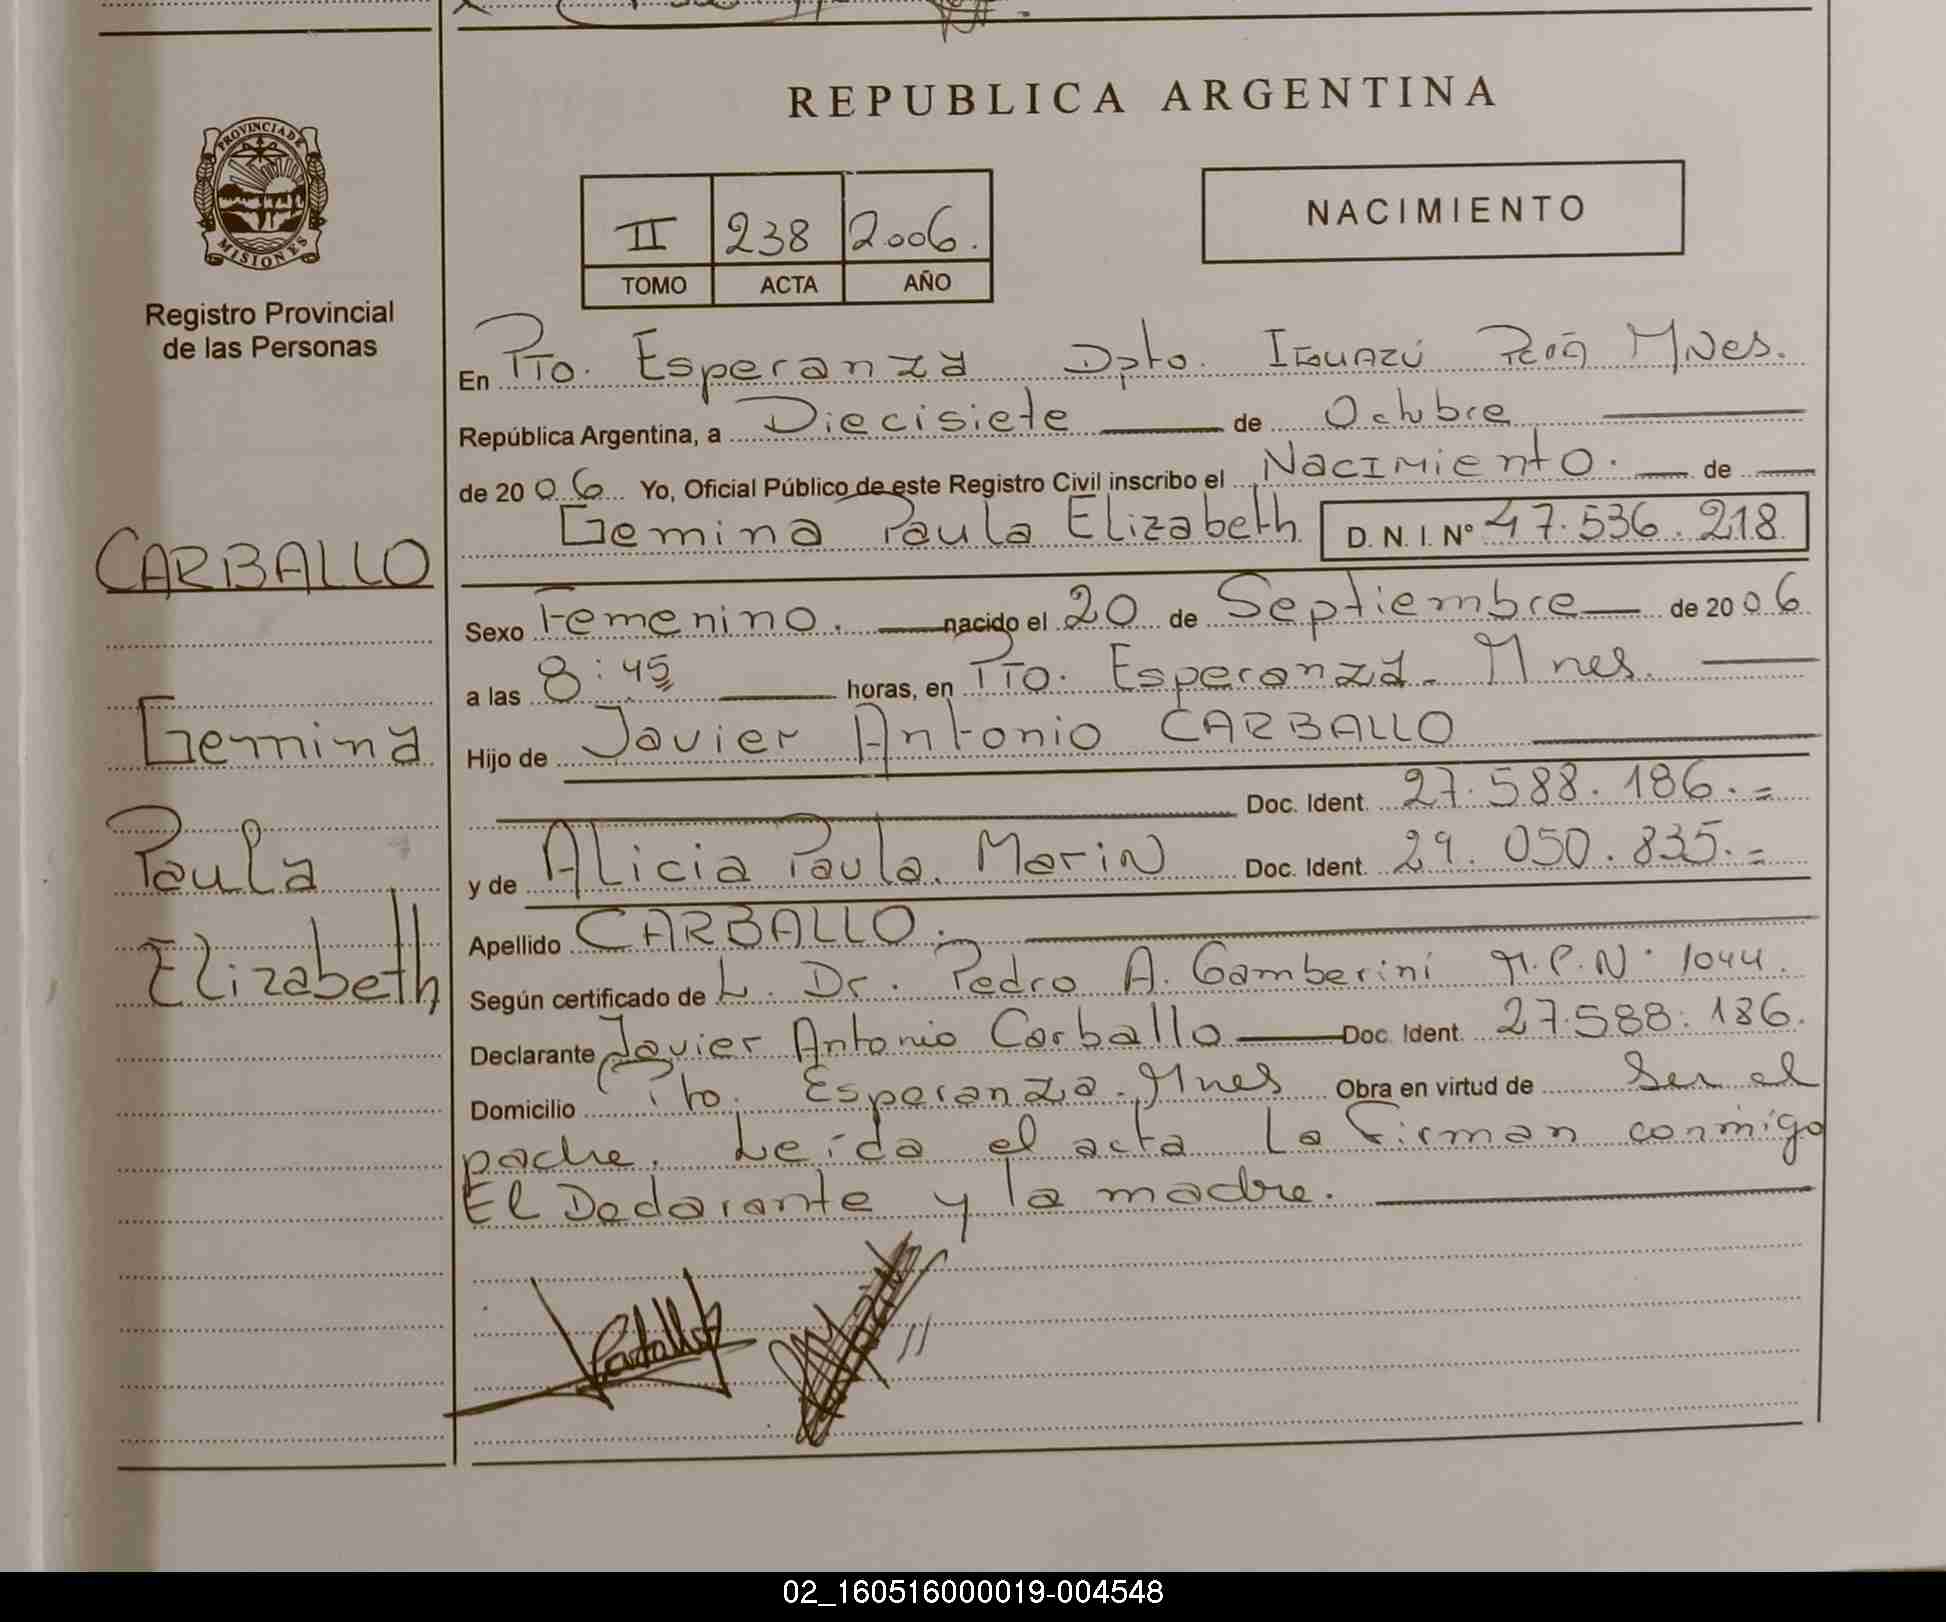 REPUBLICA ARGENTINA
PROVINCIA DE
MISIONES
Registro Provincial
de las Personas
II 238 2006.
TOMO ACTA AÑO
NACIMIENTO
CARBALLO
Gemina
Paula
Elizabeth
En Pto. Esperanza Dpto. Iguazú Pcia Mnes.
República Argentina, a Diecisiete de Octubre
de 2006 Yo, Oficial Público de este Registro Civil inscribo el Nacimiento. de
Gemina Paula Elizabeth D. N. I. Nº 47.536.218
Sexo Femenino. nacido el 20 de Septiembre de 2006
a las 8:45 horas, en Pto. Esperanza. Mnes.
Hijo de Javier Antonio CARBALLO
Doc. Ident. 27.588.186.=
y de Alicia Paula. Marin Doc. Ident. 29.050.835.=
Apellido CARBALLO.
Según certificado de L. Dr. Pedro A. Gamberini M.P.N° 1044.
Declarante Javier Antonio Carballo Doc. Ident. 27.588.186.
Domicilio Pto. Esperanza. Mnes Obra en virtud de Ser el
padre. Leída el acta la firman conmigo
El Declarante y la madre.
02_160516000019-004548